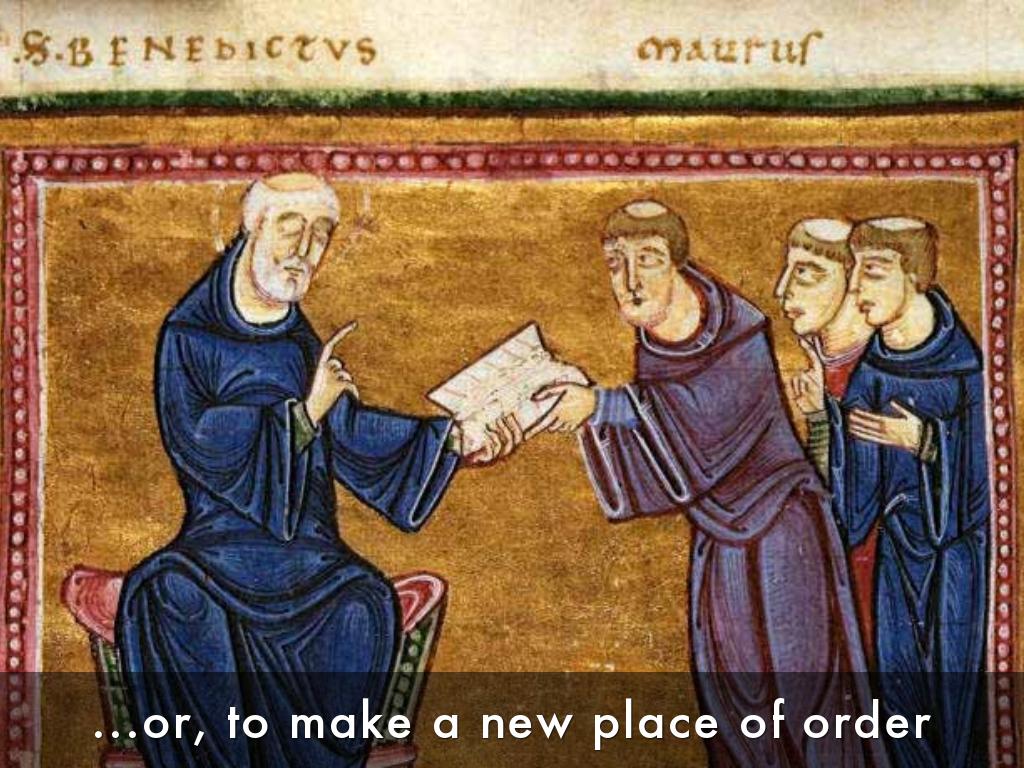 .S. BENEDICTVS maurus
...or, to make a new place of order